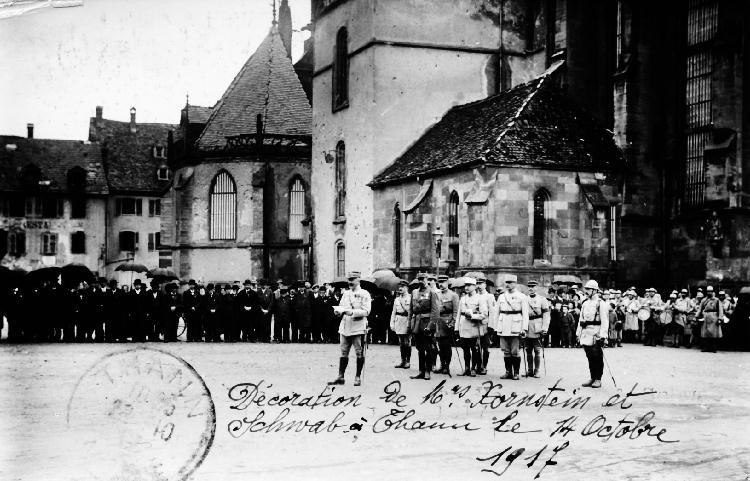 Décoration de Mrs Xornstein et
Schwab à Thann Le 14 Octobre
1917
THANN